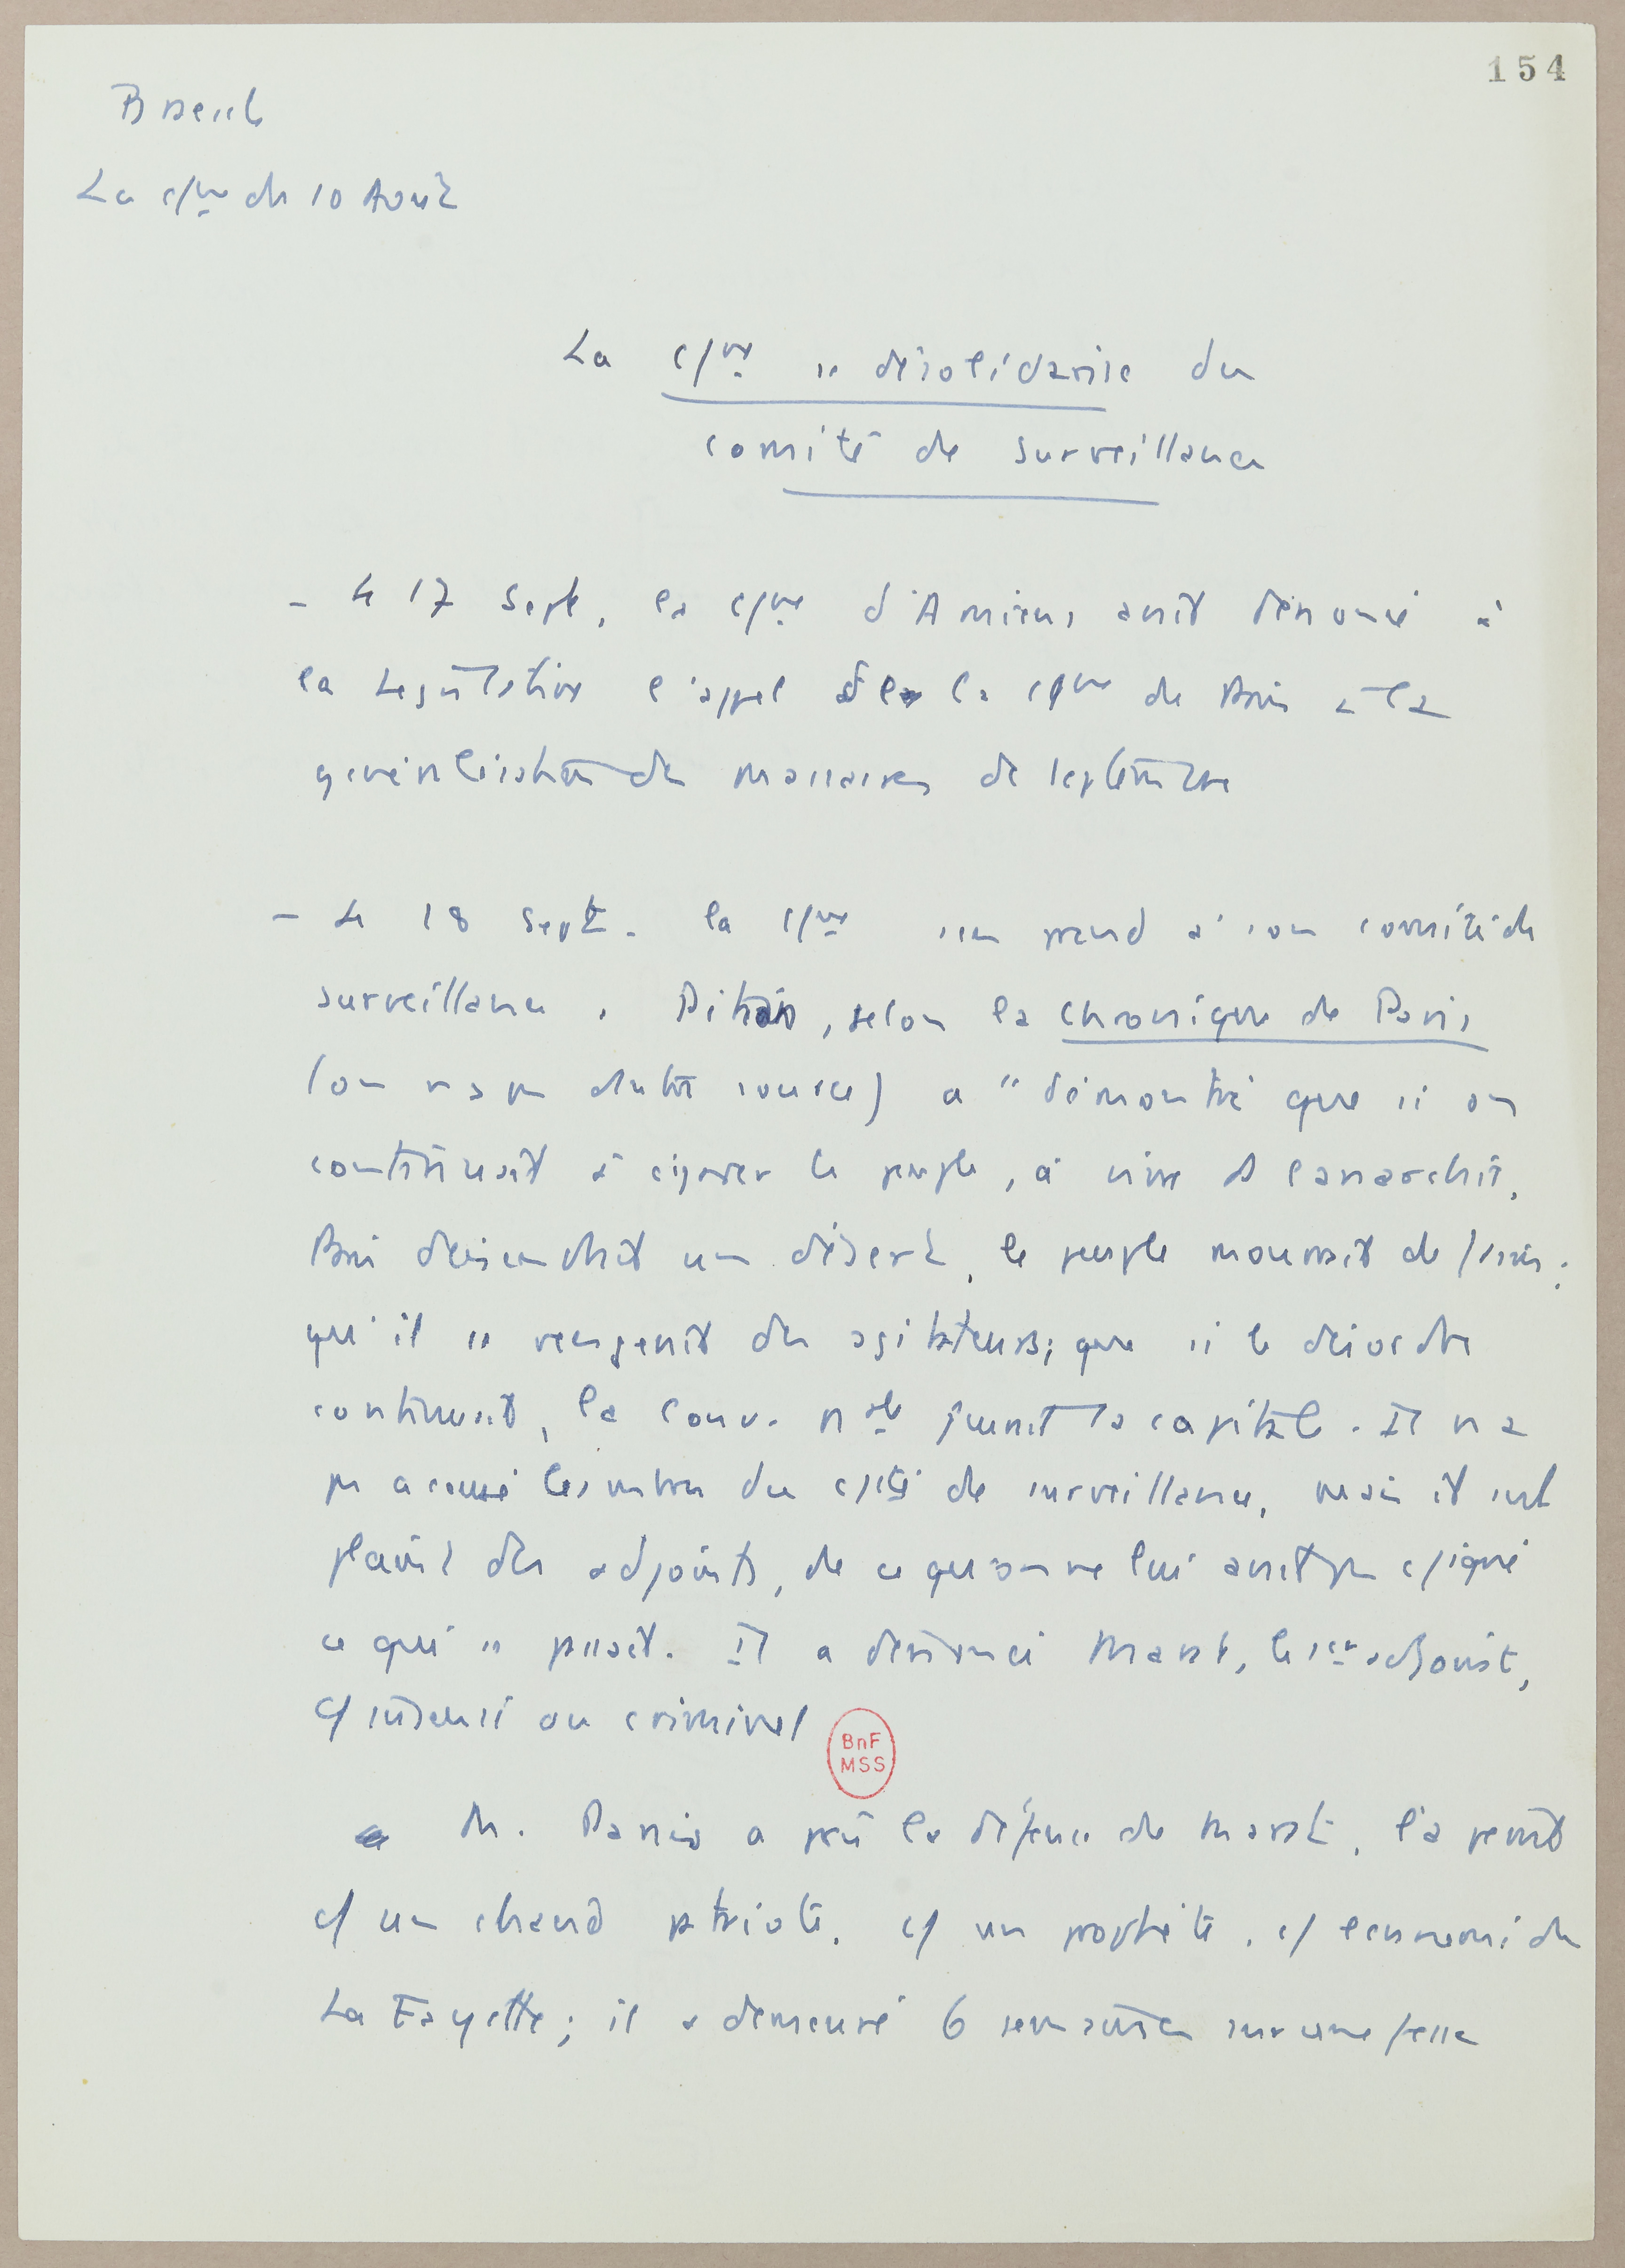 154
La cᵐᵉ du 10 Août
La cᵐᵉ se désolidarise du
comité de surveillance
- le 17 sept, la cᵐᵉ d'Amiens avait dénoncé à
la Législative l'appel de la cᵐᵉ de Paris à la
généralisation des massacres de septembre
- le 18 sept. la cᵐᵉ s'en prend à son comité de
surveillance. Pétion, selon la chronique de Paris
(on n'a pas d'autre source) a "démontré que si on
continuait à égarer le peuple, à vivre ds l'anarchie,
Paris deviendrait un désert, le peuple mourrait de faim;
qu'il se vengerait des agitateurs; que si le désordre
continuait, la Conv. nᵃˡᵉ fuirait la capitale. Il n'a
pas accusé les membres du cité de surveillance, mais il s'est
plaint des adjoints, de ce qu'on ne lui avait pas expliqué
ce qui se passait. Il a dénoncé Marat, le 1er adjoint,
c/ insensé ou criminel
BnF
MSS
M. Panis a pris la défense de Marat, l'a peint
c/ un chaud patriote, c/ un prophète, c/ l'ennemi de
La Fayette; il a demeuré 6 semaines sur une fesse